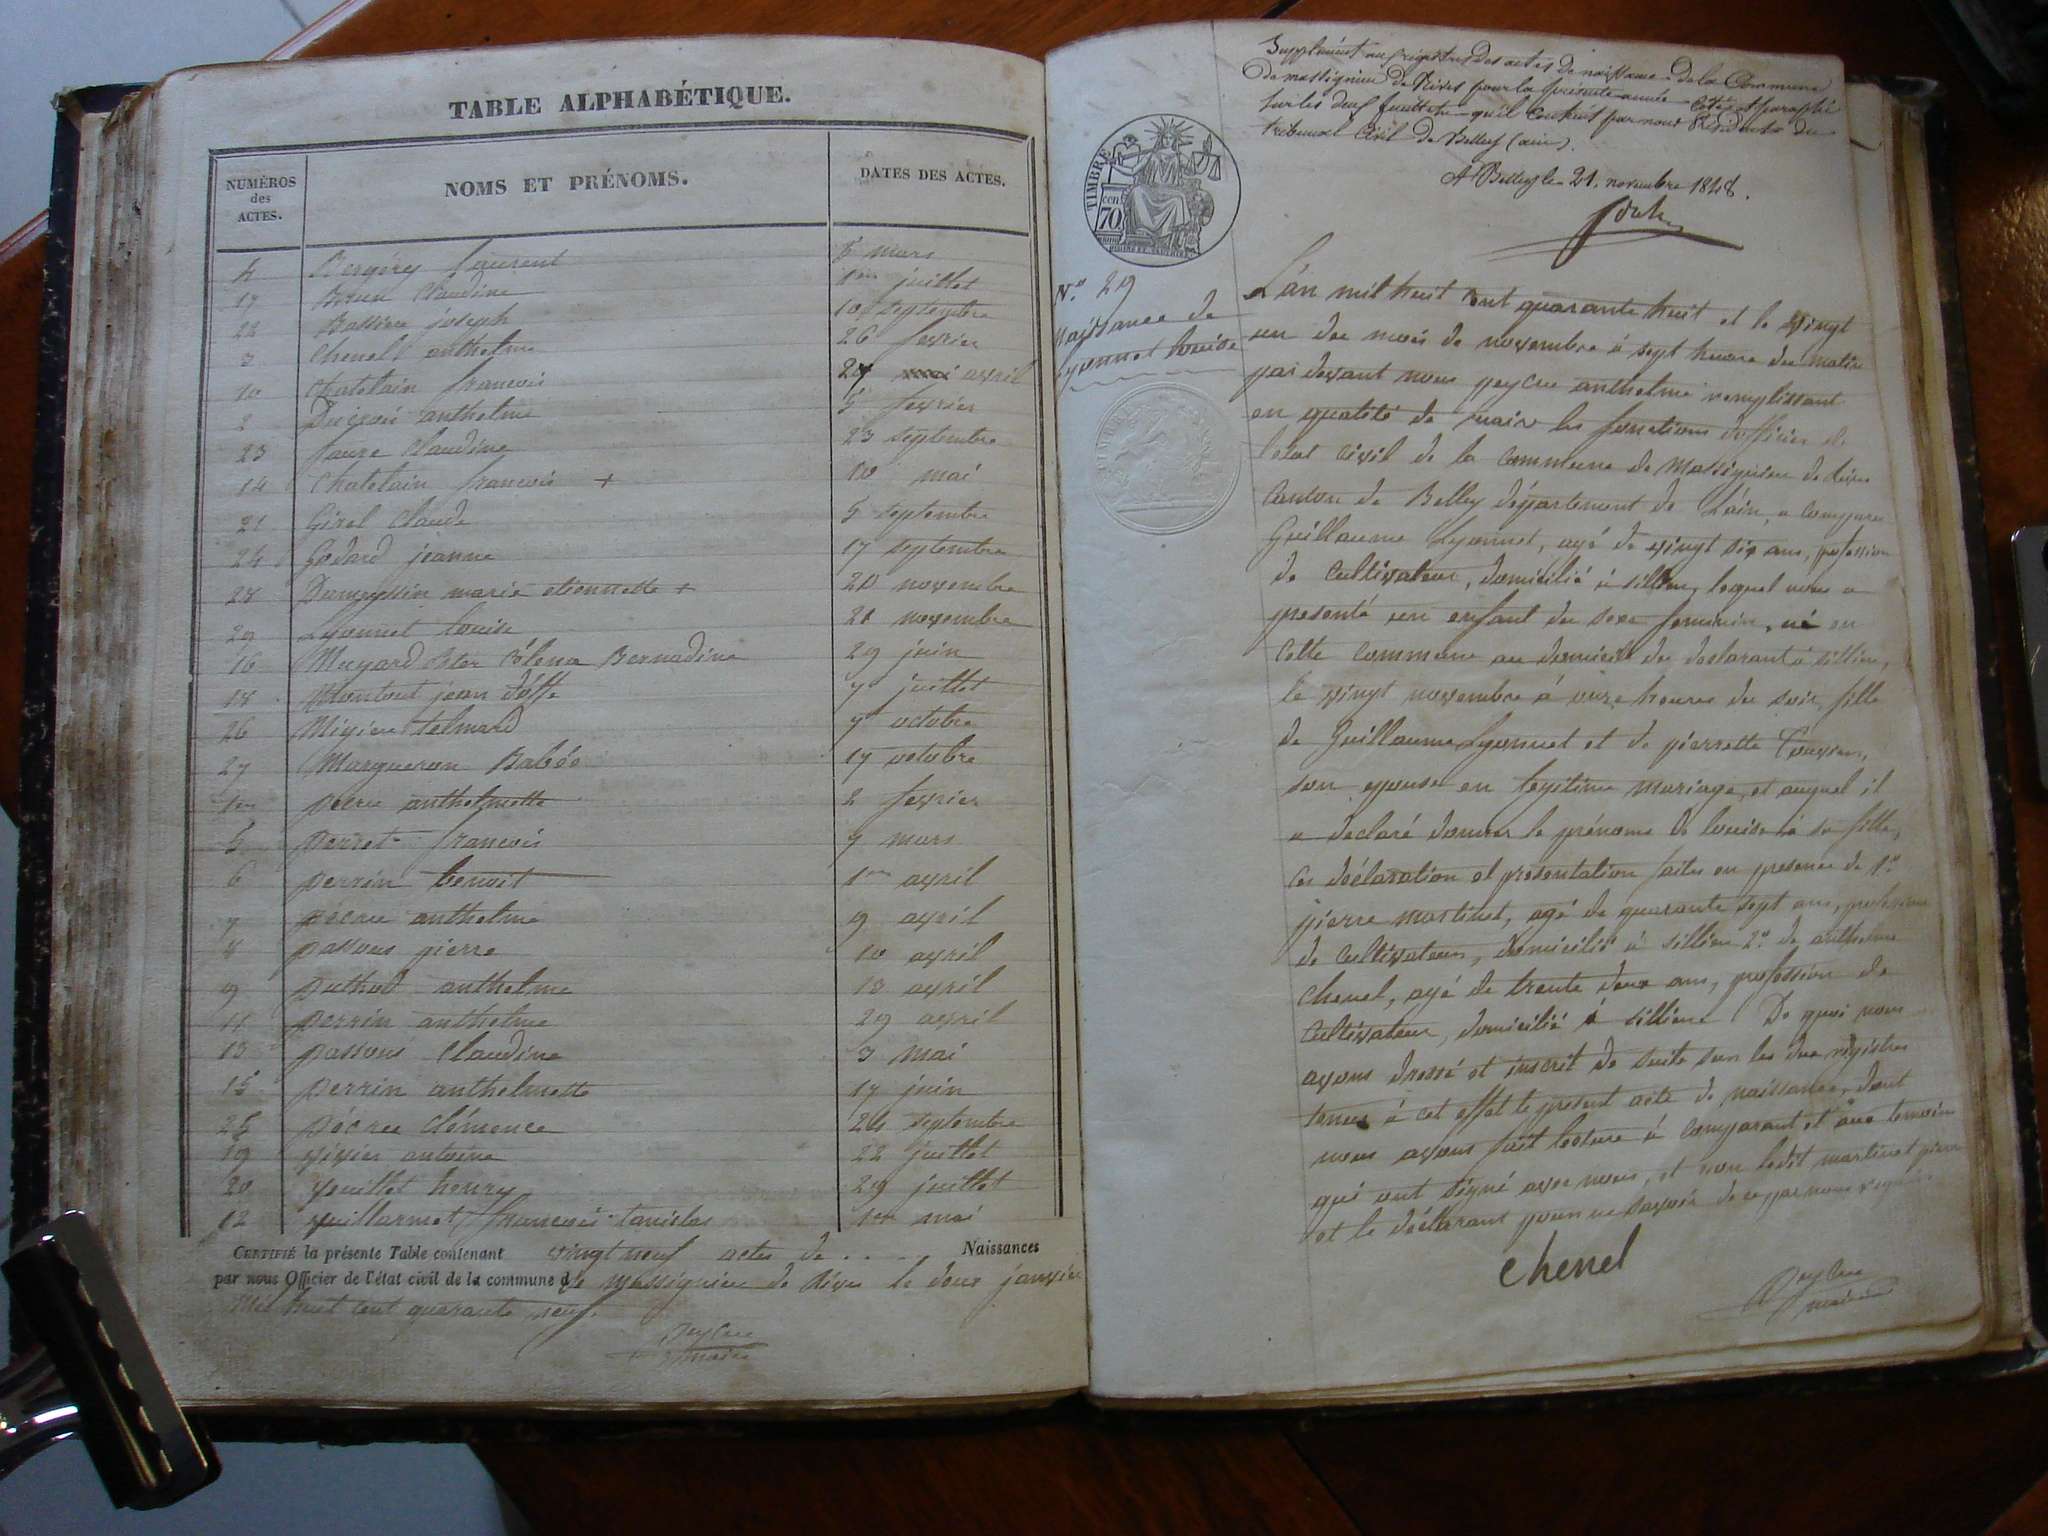 TABLE ALPHABÉTIQUE.
NUMÉROS des ACTES.
NOMS ET PRÉNOMS.
DATES DES ACTES.
4 Bergéry Laurent 5 mars
17 Brun Claudine 1er juillet
22 joseph 10 septembre
3 Chenel anthelme 26 fevrier
10 Chatelain francois 27 avril
2 anthelme 5 fevrier
23 faure Claudine 23 septembre
14 Chatelain francois + 10 mai
21 Girel Claude 5 septembre
24 Godard jeanne 17 septembre
28 Dumeyssin marie etiennette + 20 novembre
29 Lyonnet louise 21 novembre
16 Muyard Bernadine 29 juin
18 Montout jean 7 juillet
26 7 octobre
27 Margueron 17 octobre
1er pecru anthelmette 2 fevrier
5 perret francois 7 mars
6 perrin benoit 1er avril
7 pécru anthelme 9 avril
8 passous pierre 10 avril
9 puthod anthelme 13 avril
11 perrin anthelme 29 avril
13 passous Claudine 3 mai
15 perrin anthelmette 17 juin
25 pécru Clémence 24 septembre
19 vivier antoine 22 juillet
20 henry 29 juillet
12 francois tanislas 1er mai
CERTIFIÉ la présente Table contenant vingt neuf actes de .... Naissances
par nous Officier de l'état civil de la commune de massignieu de Rives le deux janvier
mil huit cent quarante neuf.
peycru
maire
Supplément au registres des actes de naissance de la Commune
de massignieu de Rives pour la présente année Coté et paraphé
sur les deux feuillets qu'il contient par nous Président du
tribunal Civil de Belley (ain).
A Belley le 21. novembre 1848.
TIMBRE
cent
70
No 29
Naissance de
Lyonnet louise
L'an mil huit cent quarante huit et le vingt
un du mois de novembre à sept heures du matin
par devant nous peycru anthelme remplissant
en qualité de maire les fonctions d'officier de
l'état civil de la commune de Massignieu de Rives
Canton de Belley département de L'áin, a comparu
Guillaume Lyonnet, agé de vingt six ans, profession
de cultivateur, domicilié à sillieu, lequel nous a
presenté un enfant du sexe feminin, né en
cette commune au domicile du declarant à sillieu,
le vingt novembre à onze heures du soir, fille
de Guillaume Lyonnet et de pierrette
son epouse en legitime mariage, et auquel il
a declaré donner le prénoms de louise à sa fille,
ces déclaration et presentation faites en presence de 1o
pierre martinet, agé de quarante sept ans, profession
de cultivateur, domicilié à sillieu 2o de anthelme
Chenel, agé de trente deux ans, profession de
cultivateur, domicilié à sillieu De quoi nous
avons dressé et inscrit de suite sur les deux régistres
tenus à cet effet le present acte de naissance, dont
nous avons fait lecture à comparant et aux temoin
qui ont signé avec nous, et non ledit martinet pierre
et le déclarant pour ne savoir de ce par nous requis
Chenel
peycru
maire